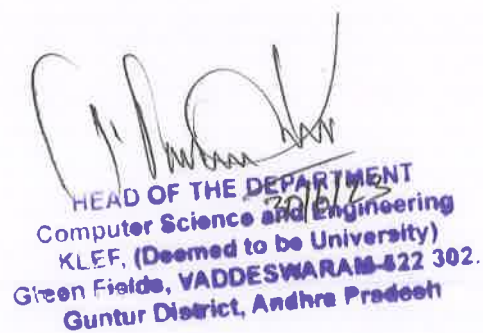 HEAD OF THE DEPARTMENT
30/6/23
Computer Science and Engineering
KLEF, (Deemed to be University)
Green Fields, VADDESWARAM-522 302.
Guntur District, Andhra Pradesh